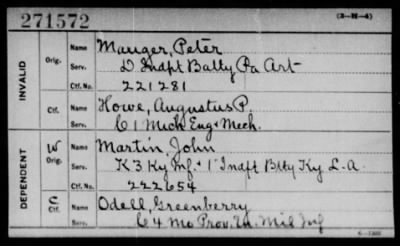 271572
(3-M-4)
INVALID
Orig.
Name Mauger, Peter
Serv. D Indpt Batty Pa Art
Ctf. No. 221281
Ctf.
Name Howe, Augustus P.
Serv. C 1 Mich Eng & Mech.
DEPENDENT
W
Orig.
Name Martin, John
Serv. K 3 Ky Inf. & 1" Indpt Btty Ky L. A.
Ctf. No. 222654
C
Ctf.
Name Odell, Greenberry
Serv. C 4 Mo Prov. En. Mil Inf